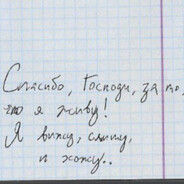 Спасибо, Господи, за то,
что я живу!
Я вижу, слышу,
и хожу..